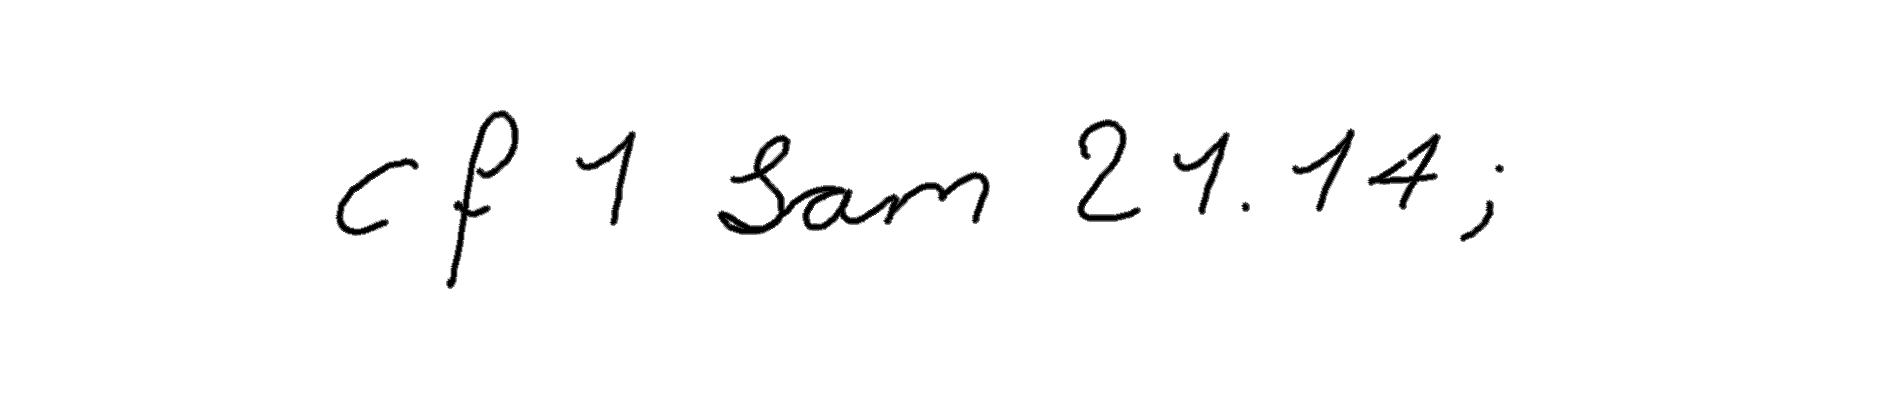 cf 1 Sam 21.14;